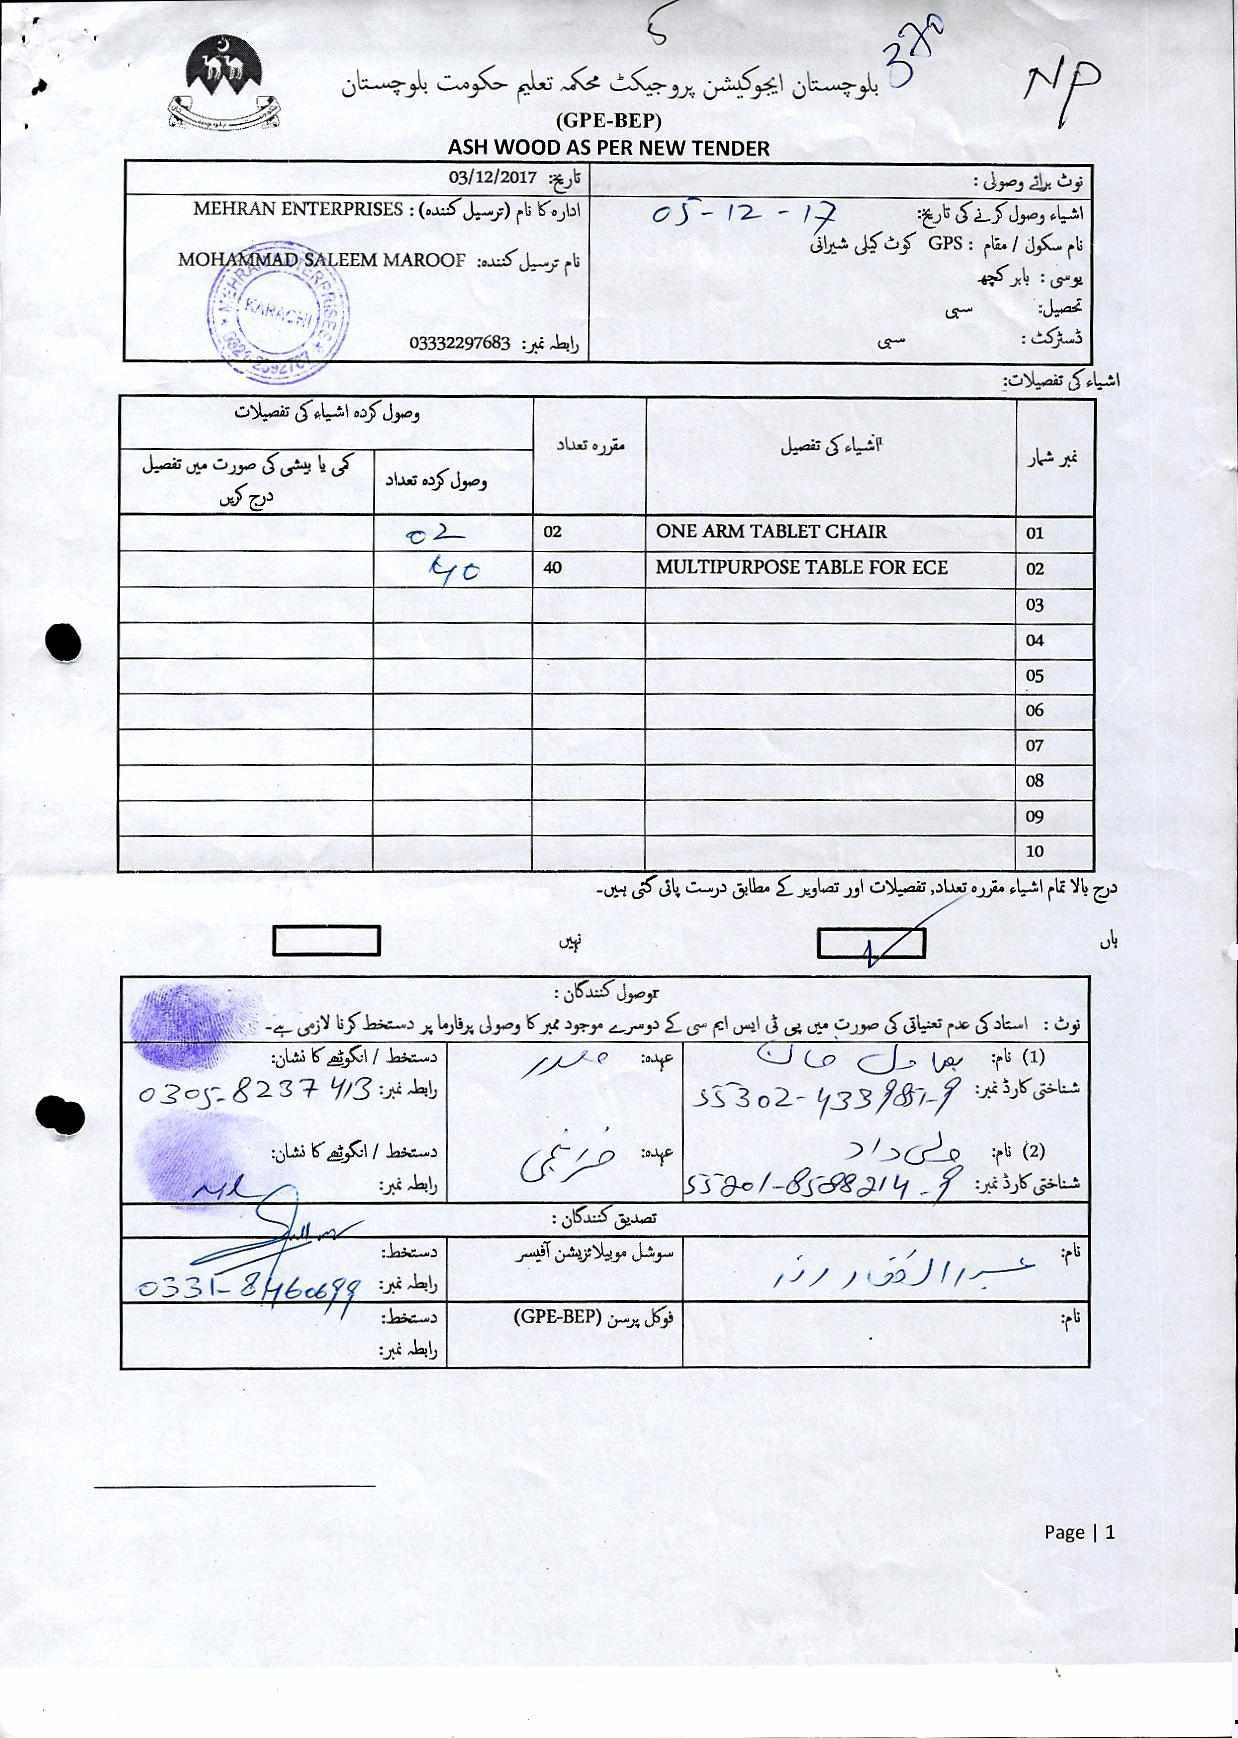 5
370
NP
بلوچستان ایجوکیشن پروجیکٹ محکمہ تعلیم حکومت بلوچستان
(GPE-BEP)
ASH WOOD AS PER NEW TENDER
نوٹ برائے وصولی :
اشیاء وصول کرنے کی تاریخ: 05-12-17
نام سکول / مقام : GPS کوٹ کیلی شیرانی
یوسی : بابر کچھ
تحصیل: سبی
ڈسٹرکٹ : سبی
تاریخ: 03/12/2017
ادارہ کا نام (ترسیل کنندہ) : MEHRAN ENTERPRISES
نام ترسیل کنندہ: MOHAMMAD SALEEM MAROOF
رابطہ نمبر: 03332297683
MEHRAN ENTERPRISES
KARACHI
اشیاء کی تفصیلات:
نمبر شمار اشیاء کی تفصیل مقررہ تعداد وصول کردہ اشیاء کی تفصیلات
وصول کردہ تعداد کمی یا بیشی کی صورت میں تفصیل درج کریں
01 ONE ARM TABLET CHAIR 02 02
02 MULTIPURPOSE TABLE FOR ECE 40 40
03
04
05
06
07
08
09
10
درج بالا تمام اشیاء مقررہ تعداد, تفصیلات اور تصاویر کے مطابق درست پائی گئی ہیں۔
ہاں نہیں
وصول کنندگان :
نوٹ : استاد کی عدم تعنیاتی کی صورت میں پی ٹی ایس ایم سی کے دوسرے موجود ممبر کا وصولی پرفارما پر دستخط کرنا لازمی ہے۔
(1) نام: بہاول خان عہدہ: صدر دستخط / انگوٹھے کا نشان:
شناختی کارڈ نمبر: رابطہ نمبر: 0305-8237413
(2) نام: علی داد عہدہ: خزانچی دستخط / انگوٹھے کا نشان:
شناختی کارڈ نمبر: 55201-8588214-9 رابطہ نمبر:
تصدیق کنندگان :
نام: سوشل موبیلائزیشن آفیسر دستخط:
رابطہ نمبر: 0331-8460699
نام: فوکل پرسن (GPE-BEP) دستخط:
رابطہ نمبر:
Page | 1